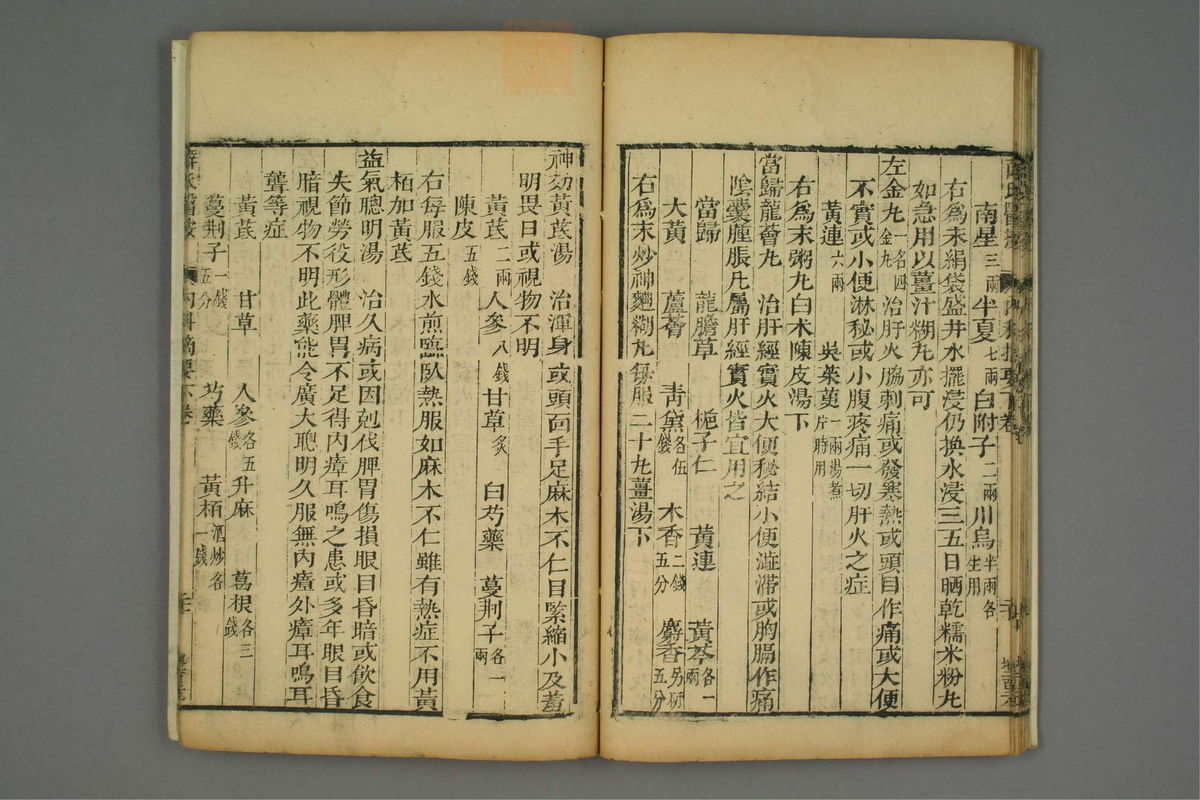 南星三兩 半夏七兩 白附子二兩 川烏半兩各生用
右爲末絹袋盛井水擺浸仍換水浸三五日晒乾糯米粉丸
如急用以薑汁糊丸亦可
左金丸一名四金丸 治肝火脇刺痛或發寒熱或頭目作痛或大便
不實或小便淋秘或小腹疼痛一切肝火之症
黃連六兩 吳茱萸一兩湯煮片時用
右爲末粥丸白朮陳皮湯下
當歸龍薈丸 治肝經實火大便秘結小便澁滯或胸膈作痛
陰囊腫脹凡屬肝經實火皆宜用之
當歸 龍膽草 梔子仁 黃連 黃芩各一兩
大黃 蘆薈 靑黛各伍錢 木香二錢五分 麝香另研五分
右爲末炒神麯糊丸每服二十丸薑湯下
神効黃芪湯 治渾身或頭面手足麻木不仁目緊縮小及羞
明畏日或視物不明
黃芪二兩 人參八錢 甘草炙 白芍藥 蔓荆子各一兩
陳皮五錢
右每服五錢水煎臨臥熱服如麻木不仁雖有熱症不用黃
栢加黃芪
益氣聰明湯 治久病或因剋伐脾胃傷損眼目昏暗或飲食
失節勞役形體脾胃不足得內瘴耳鳴之患或多年眼目昏
暗視物不明此藥能令廣大聰明久服無內瘴外瘴耳鳴耳
聾等症
黃芪 甘草 人參各五錢 升麻 葛根各三錢
蔓荆子一錢五分 芍藥 黃栢酒炒各一錢
薛氏醫案 內科摘要下卷